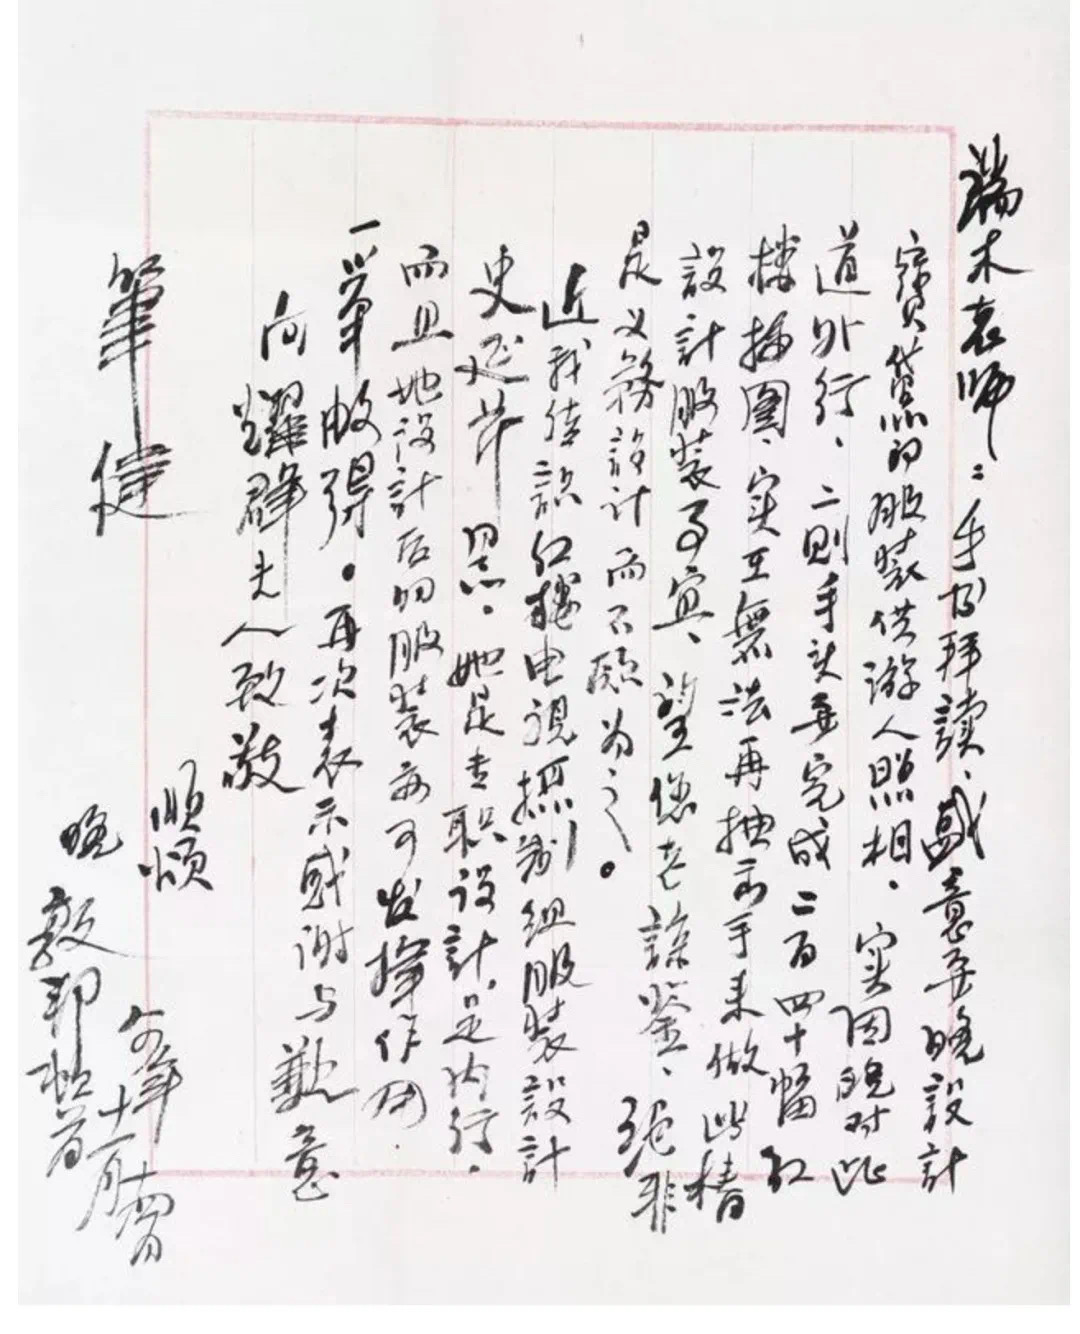 端木表师：手书拜读、盛意要晚設計
寳黛的服装供游人照相、实因晚对此
道外行、二则手头要完成二百四十幅红
楼插圖、实在無法再抽出手来做此樁
設計服装事宜、望您老諒鉴、绝非
是义務設计而不願为之。
近我结识红楼电视摄制组服装設計
史延芹 同志、她是专职设計、是内行、
而且她设計后的服装亦可发揮作用
一举两得。再次表示感谢与歉意
向耀群夫人致敬
順頌
筆健
晚
敦邦 頓首
十一月